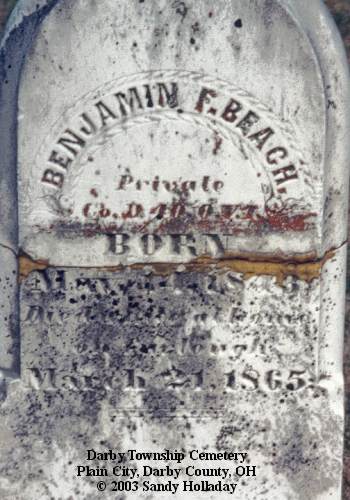 BENJAMIN F. BEACH.
Private
Co. D. 40. O.V.I.
BORN
1843
Died
March 21, 1865.
Darby Township Cemetery
Plain City, Darby County, OH
© 2003 Sandy Holladay